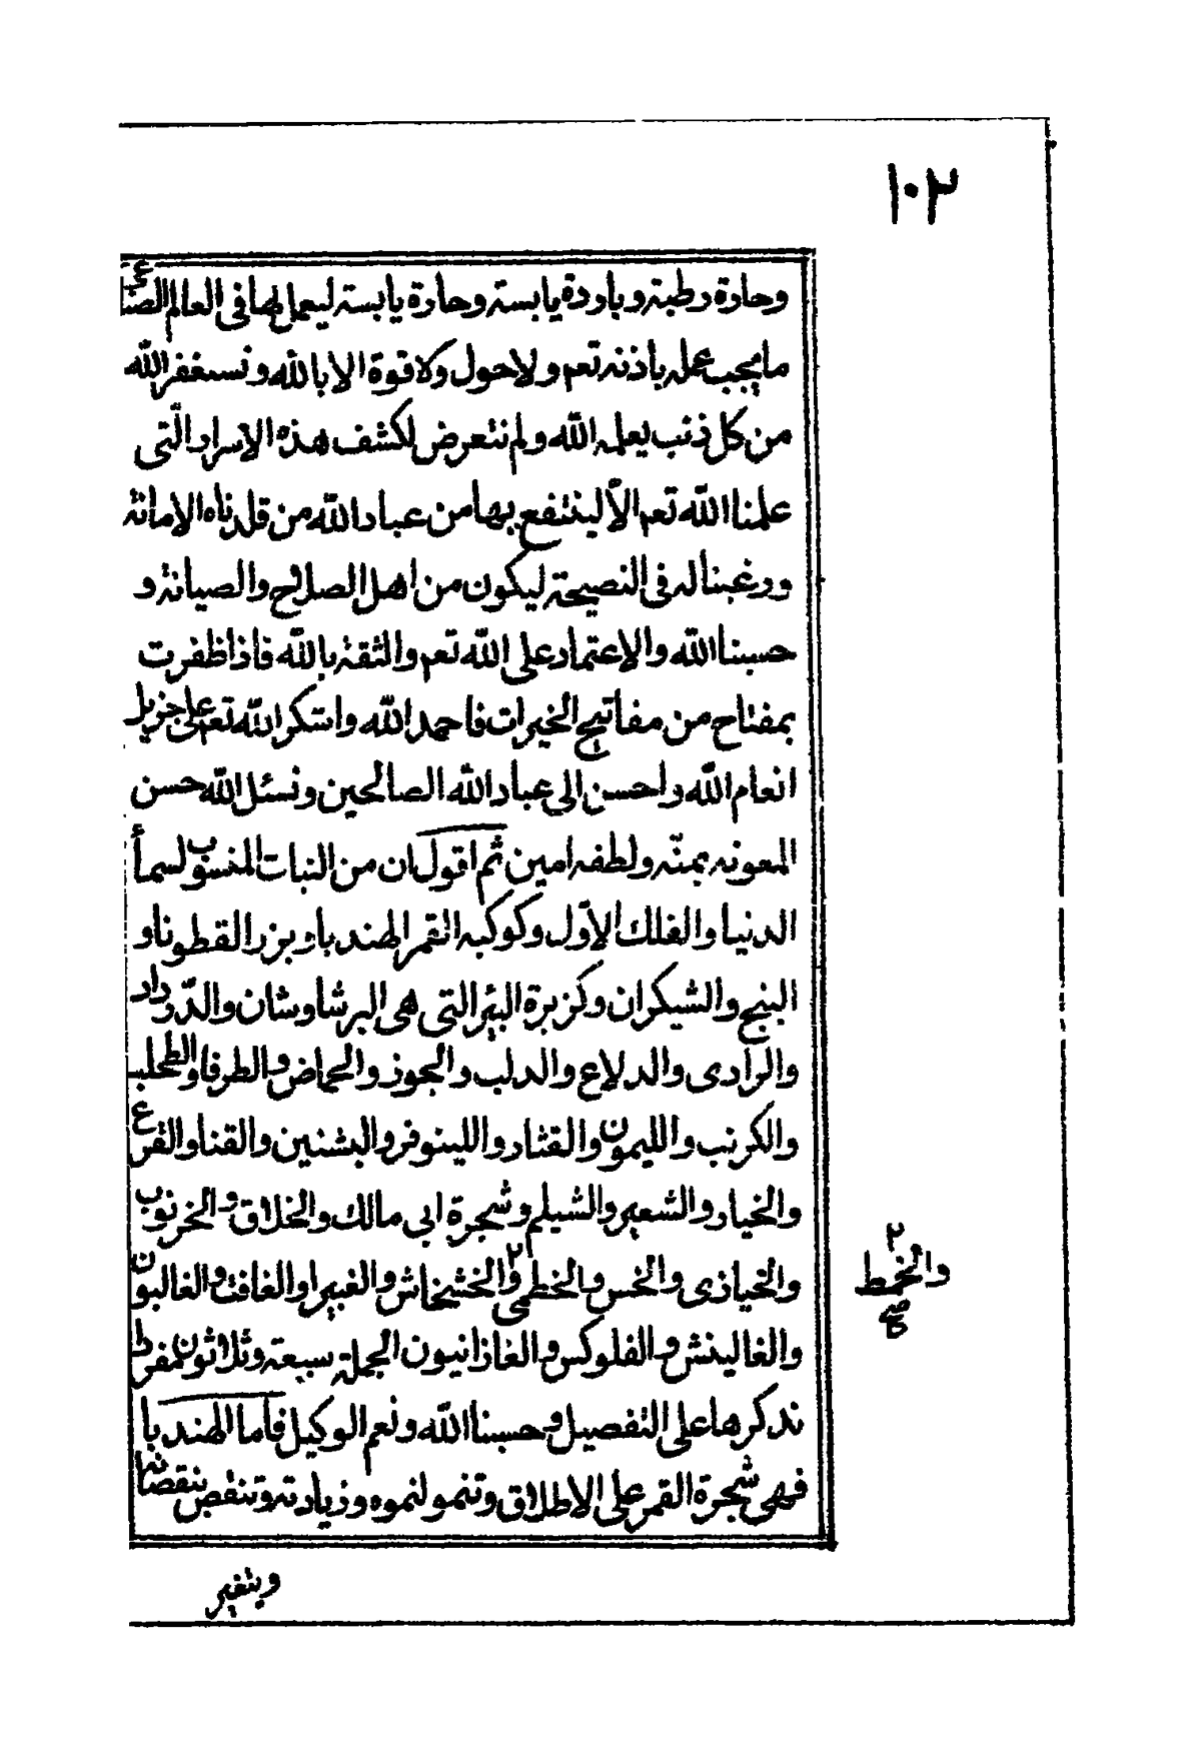 ١٠٢
وحارة رطبة وباردة يابسة وحارة يابسة ليعمل لها فى العالم
ما يجب عمله باذنه تعم ولا حول ولا قوة الا بالله ونستغفر الله
من كل ذنب يعلمه الله ولم نتعرض لكشف هذه الاسرار الّتى
علمنا الله تعم الاّ لينتفع بها من عباد الله من قلدناه الامانة
ورغبنا له فى النصيحة ليكون من اهل الصلاح والصيانة و
حسبنا الله والاعتماد على الله تعم والثقة بالله فاذا ظفرت
بمفتاح من مفاتيح الخيرات فاحمد الله واشكر الله تعم على جزيل
انعام الله واحسن الى عباد الله الصالحين ونسئل الله حسن
المعونه بمنّه ولطفه امين ثم اقول ان من النبات المنسوب لسمأ
الدنيا والفلك الاوّل وكوكبه القمر الهندبا وبزر القطونا و
البنج والشيكران وكزبرة البئر التى هى البرشاوشان والدّودار
والرادى والدلاع والدلب والجوز والحماض والطرفا والطحلب
والكرنب والليمون والقثار واللينوفر والبشنين والقنا والقرع
والخيار والشعير والشيلم وشجرة ابى مالك والخلاق والخرنوب
والخيازى والخس والخطمى ٢ والخشخاش والغبيرا والغافت والغالبون
والغالينش والفلوكس والغازانيون الجملة سبعة وثلاثون مفردا
نذكرها على التفصيل وحسبنا الله ونعم الوكيل فاما الهندبا
فهى شجرة القمر على الاطلاق وتنمو لنموه وزيادته وتنقص بنقصانه
٢
والخمط
صح
ويتغير